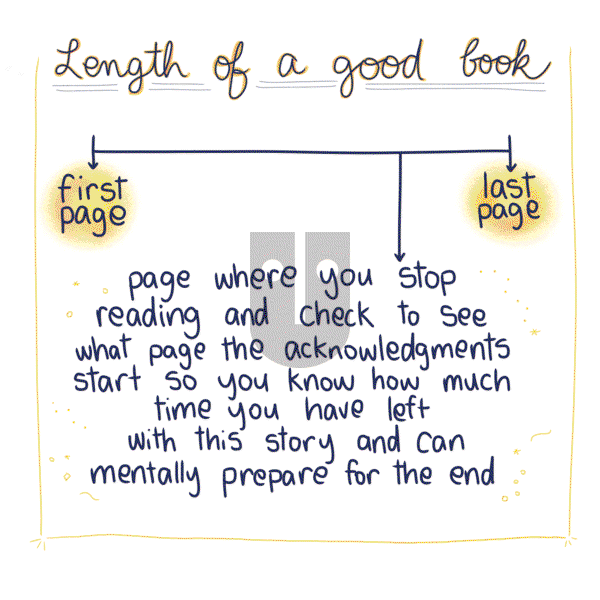 Length of a good book
first
page
last
page
page where you stop
reading and check to see
what page the acknowledgments
start so you know how much
time you have left
with this story and can
mentally prepare for the end